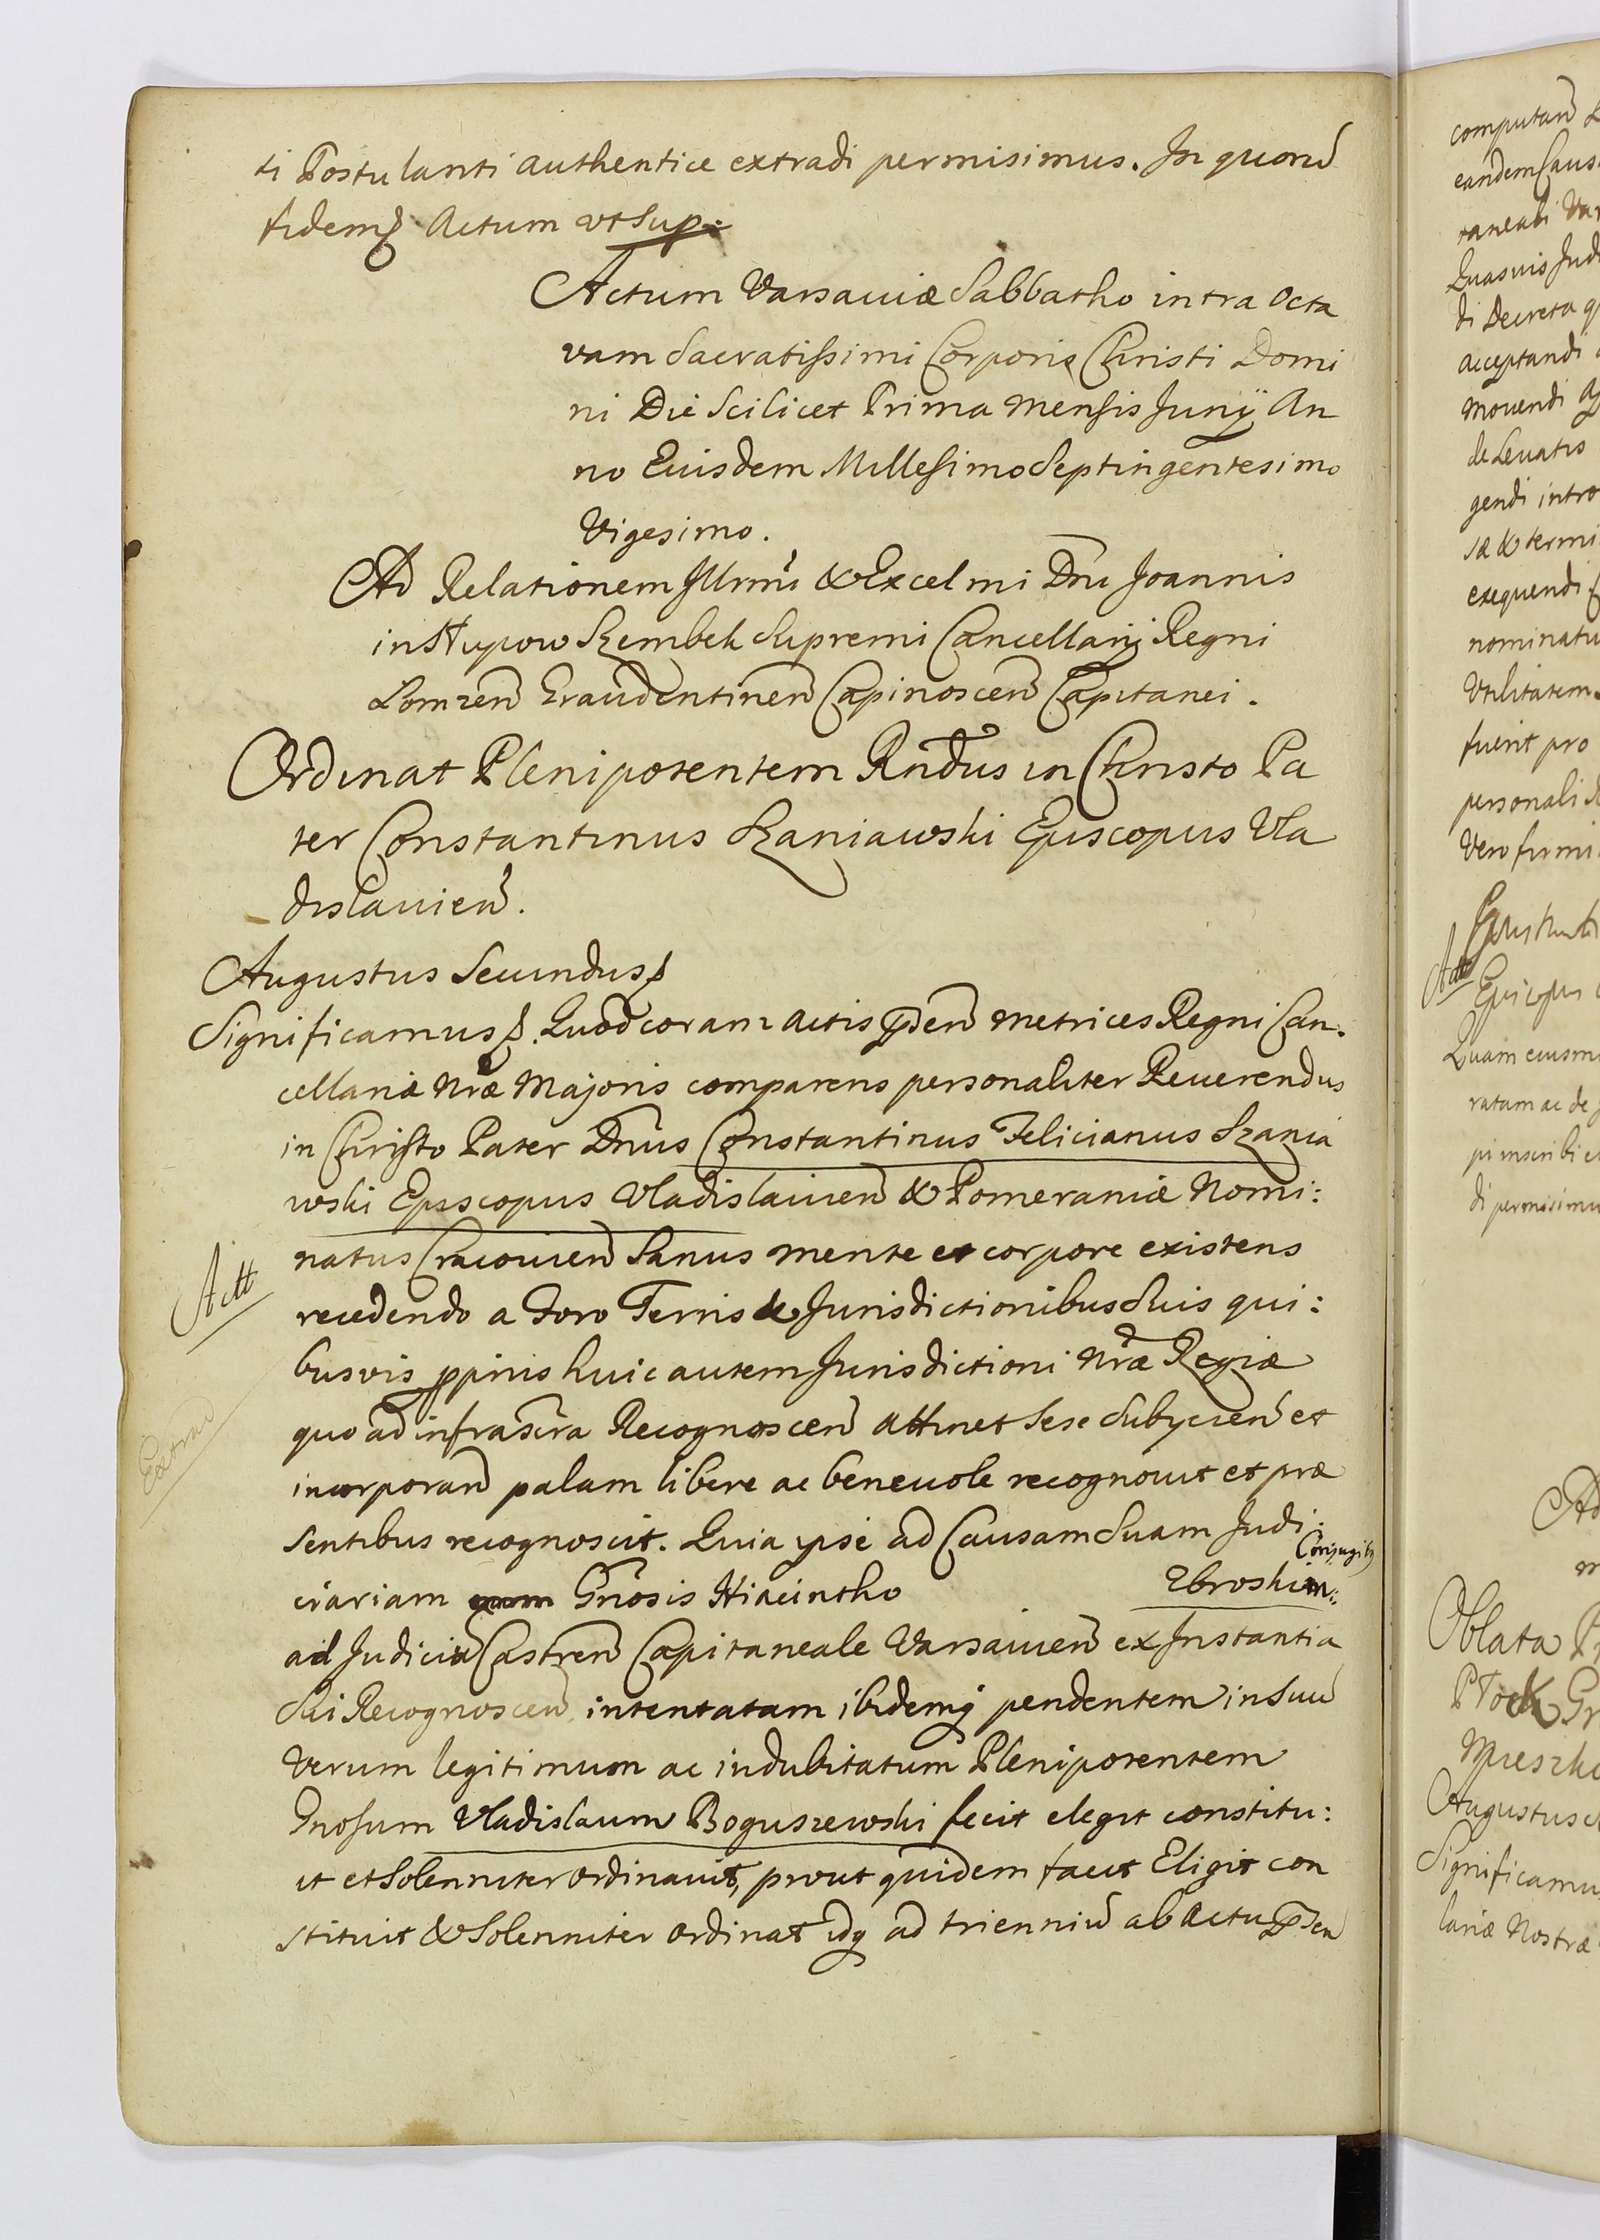 ti Postulanti authentice extradi permisimus. In quorū
fidem Actum ut Sup:
Actum Varsaviæ Sabbatho intra Octa
vam Sacratissimi Corporis Christi Domi
ni Die Scilicet Prima Mensis Junij An
no Eiusdem Millesimo Septingentesimo
Vigesimo.
Ad Relationem Illrmi & Excelmi Dni Joannis
in Słupow Szembek Supremi Cancellarij Regni
Lomzen Graudentinen Capinoscen Capitanei.
Ordinat Plenipotentem Rndus in Christo Pa
ter Constantinus Szaniawski Episcopus Vla
dislavien.
Augustus Secundus
Significamus Quod coram Actis pñen Metrices Regni Can.
cellariæ Nræ Majoris comparens personaliter Reverendus
in Christo Pater Dnus Constantinus Felicianus Szania
wski Episcopus Vladislavien & Pomeraniæ Nomi:
natus Cracovien Sanus mente et corpore existens
recedendo a Foro Terris & Jurisdictionibus Suis qui:
busvis ppriis huic autem Jurisdictioni Nræ Regiæ
quo ad infrascra Recognoscen attinet Sese Subycien et
incorporan palam libere ac benevole recognovit et præ
sentibus recognoscit. Quia ipse ad Causam Suam Judi:
ciariam Gnosis Hiacintho Zbroskim: Conjugibg
ad Judiciū Castren Capitaneale Varsavien ex Instantia
Sui Recognoscen intentatam ibidemq pendentem in Suū
Verum legitimum ac indubitatum Plenipotentem
Gnosum Vladislaum Boguszewski fecit elegit constitu:
it et Solenniter ordinavit, prout quidem facit Eligit con
stituit & Solenniter ordinat idq ad trienniū ab Actu pñsen
Actt
Extrad
computan
eandem Caus
raneali Var
Quasvis Judi
di Decreta q
acceptandi
movendi
de Levatis
gendi intro
sæ & termi
exequendi
nominatu
Utilitatem
fuerit pro
personali
Vero firmi
Actt
Episcopus
Quam eiusm
ratam ac de
pi inscribi et
di permisimu
Ad
Oblata
Płock Gr
Mieszko
Augustus
Significamu
lariæ Nostræ